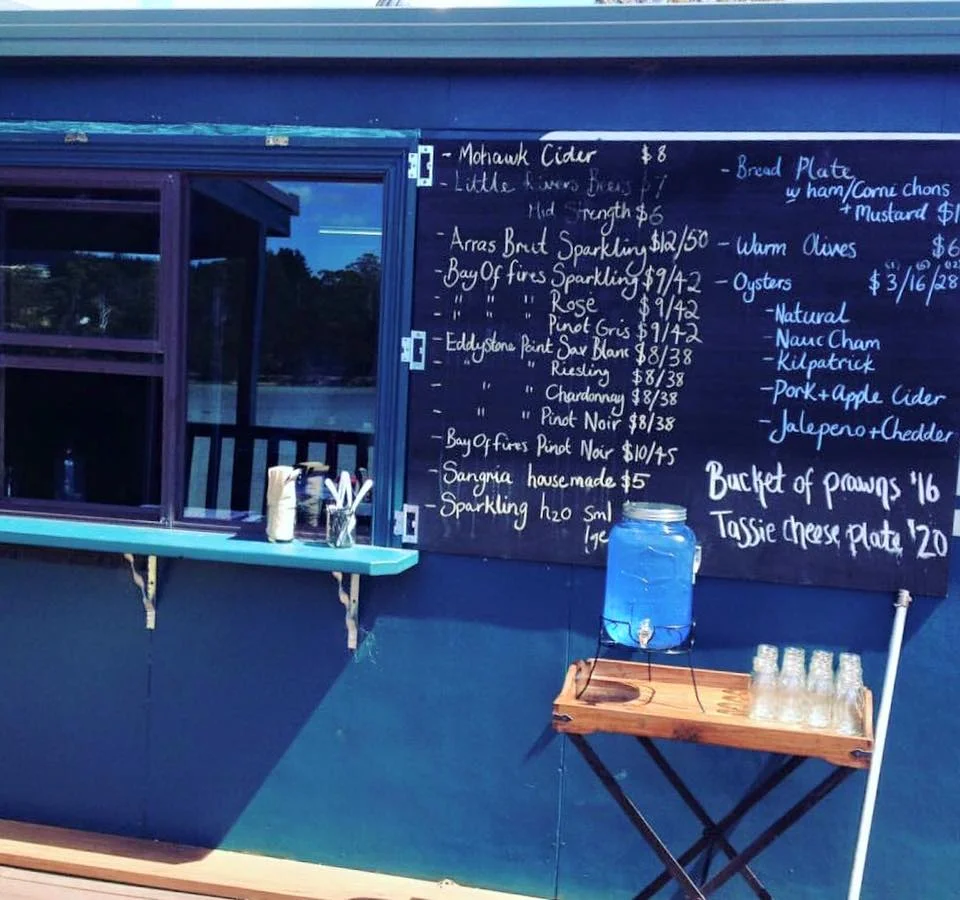 - Mohawk Cider $8
- Little Rivers Beers $7
Mid Strength $6
- Arras Brut Sparkling $12/50
- Bay Of fires Sparkling $9/42
- " " " Rosé $9/42
- " " " Pinot Gris $9/42
- Eddystone Point Sav Blanc $8/38
- " " Riesling $8/38
- " " Chardonnay $8/38
- " " Pinot Noir $8/38
- Bay Of fires Pinot Noir $10/45
- Sangria housemade $5
- Sparkling h2o sml
lge
- Bread Plate
w ham/Corni chons
+ Mustard
- Warm Olives $6
- Oysters $3/16/28
- Natural
- Nauc Cham
- Kilpatrick
- Pork + Apple Cider
- Jalepeno + Chedder
Bucket of prawns $16
Tassie cheese plate $20